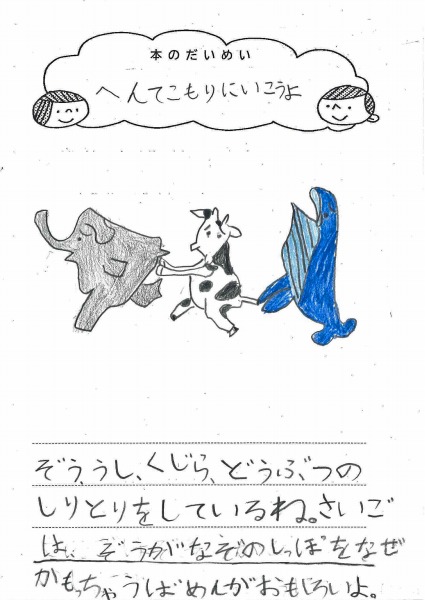 本のだいめい
へんてこもりにいこうよ
ぞう、うし、くじら、どうぶつの
しりとりをしているね。さいご
は、ぞうがなぞのしっぽをなぜ
かもっちゃうばめんがおもしろいよ。